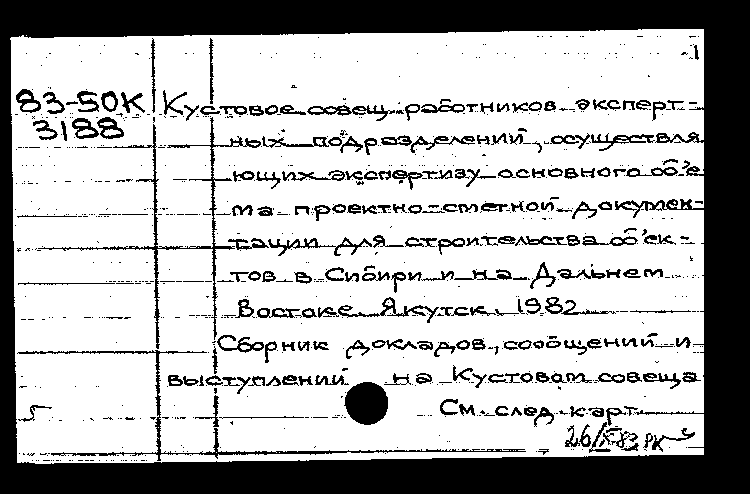 1
83-50К Кустовое совещ. работников эксперт-
3188 ных подразделений, осуществля
ющих экспертизу основного об'е
ма проектно-сметной докумен-
тации для строительства об'ек-
тов в Сибири и на Дальнем
Востоке. Якутск. 1982
Сборник докладов, сообщений и
выступлений на Кустовом совеща
См. след. карт.